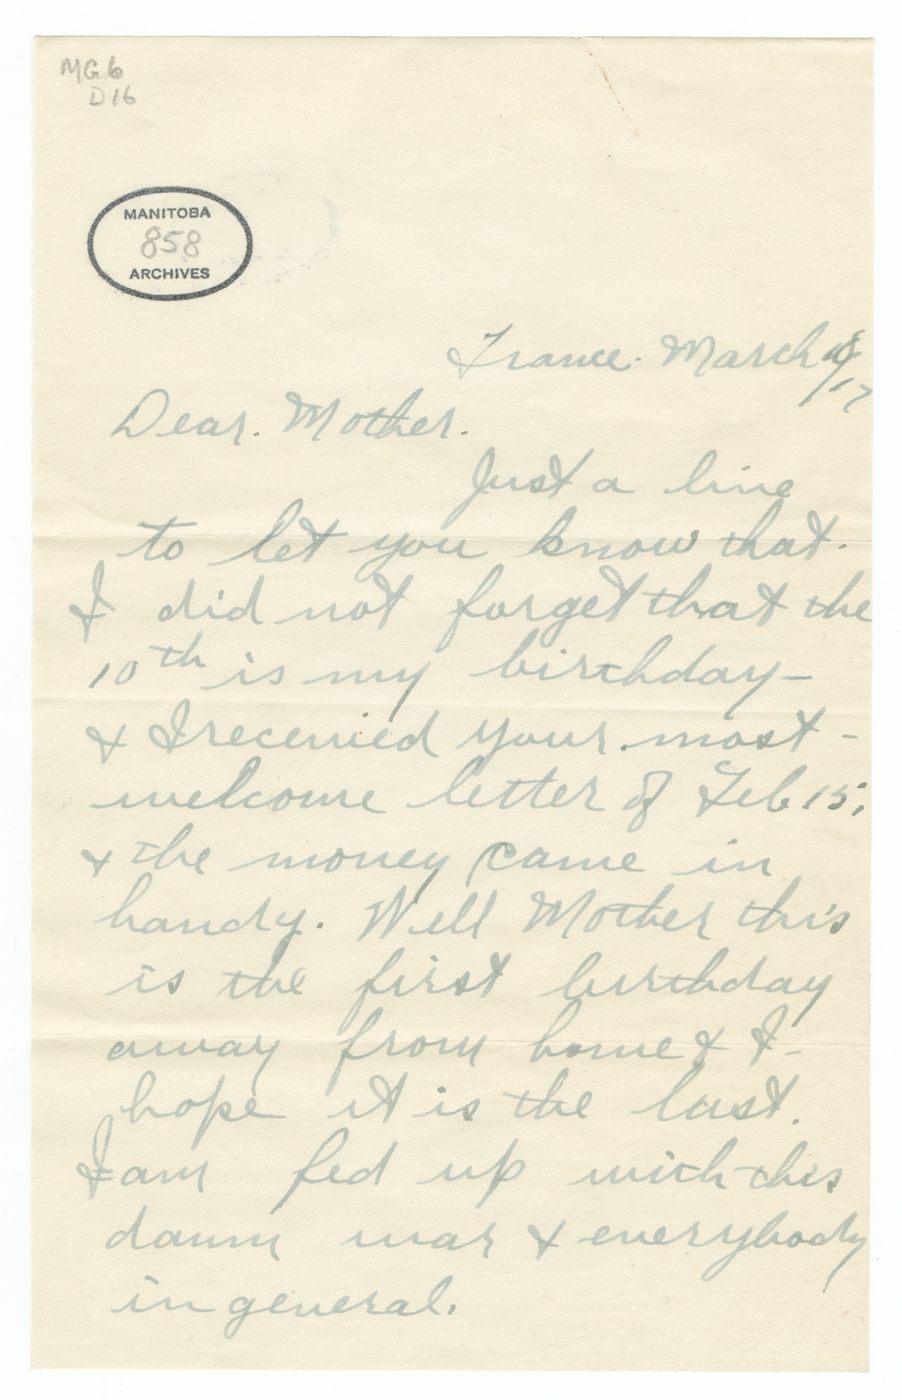 MG6
D16
MANITOBA
858
ARCHIVES
France. March
/17
Dear. Mother.
Just a line
to let you know that.
I did not forget that the
10th is my birthday -
& I received your. most -
welcome letter of Feb 15,
& the money came in
handy. Well Mother this
is the first birthday
away from home & I -
hope it is the last.
I am fed up with this
damn war & everybody
in general.